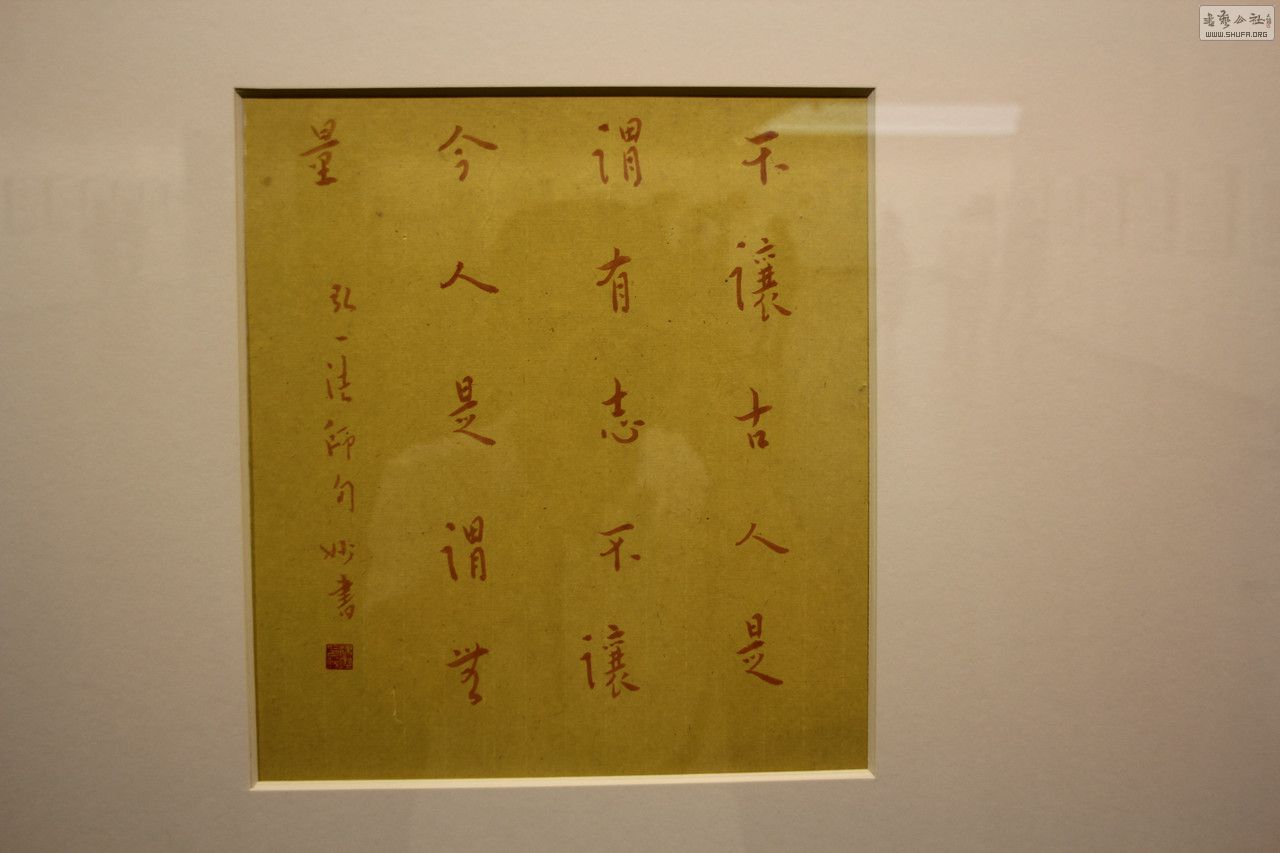 不讓古人是
謂有志不讓
今人是謂無
量
弘一法師句妙書
書藝公社
WWW.SHUFA.ORG